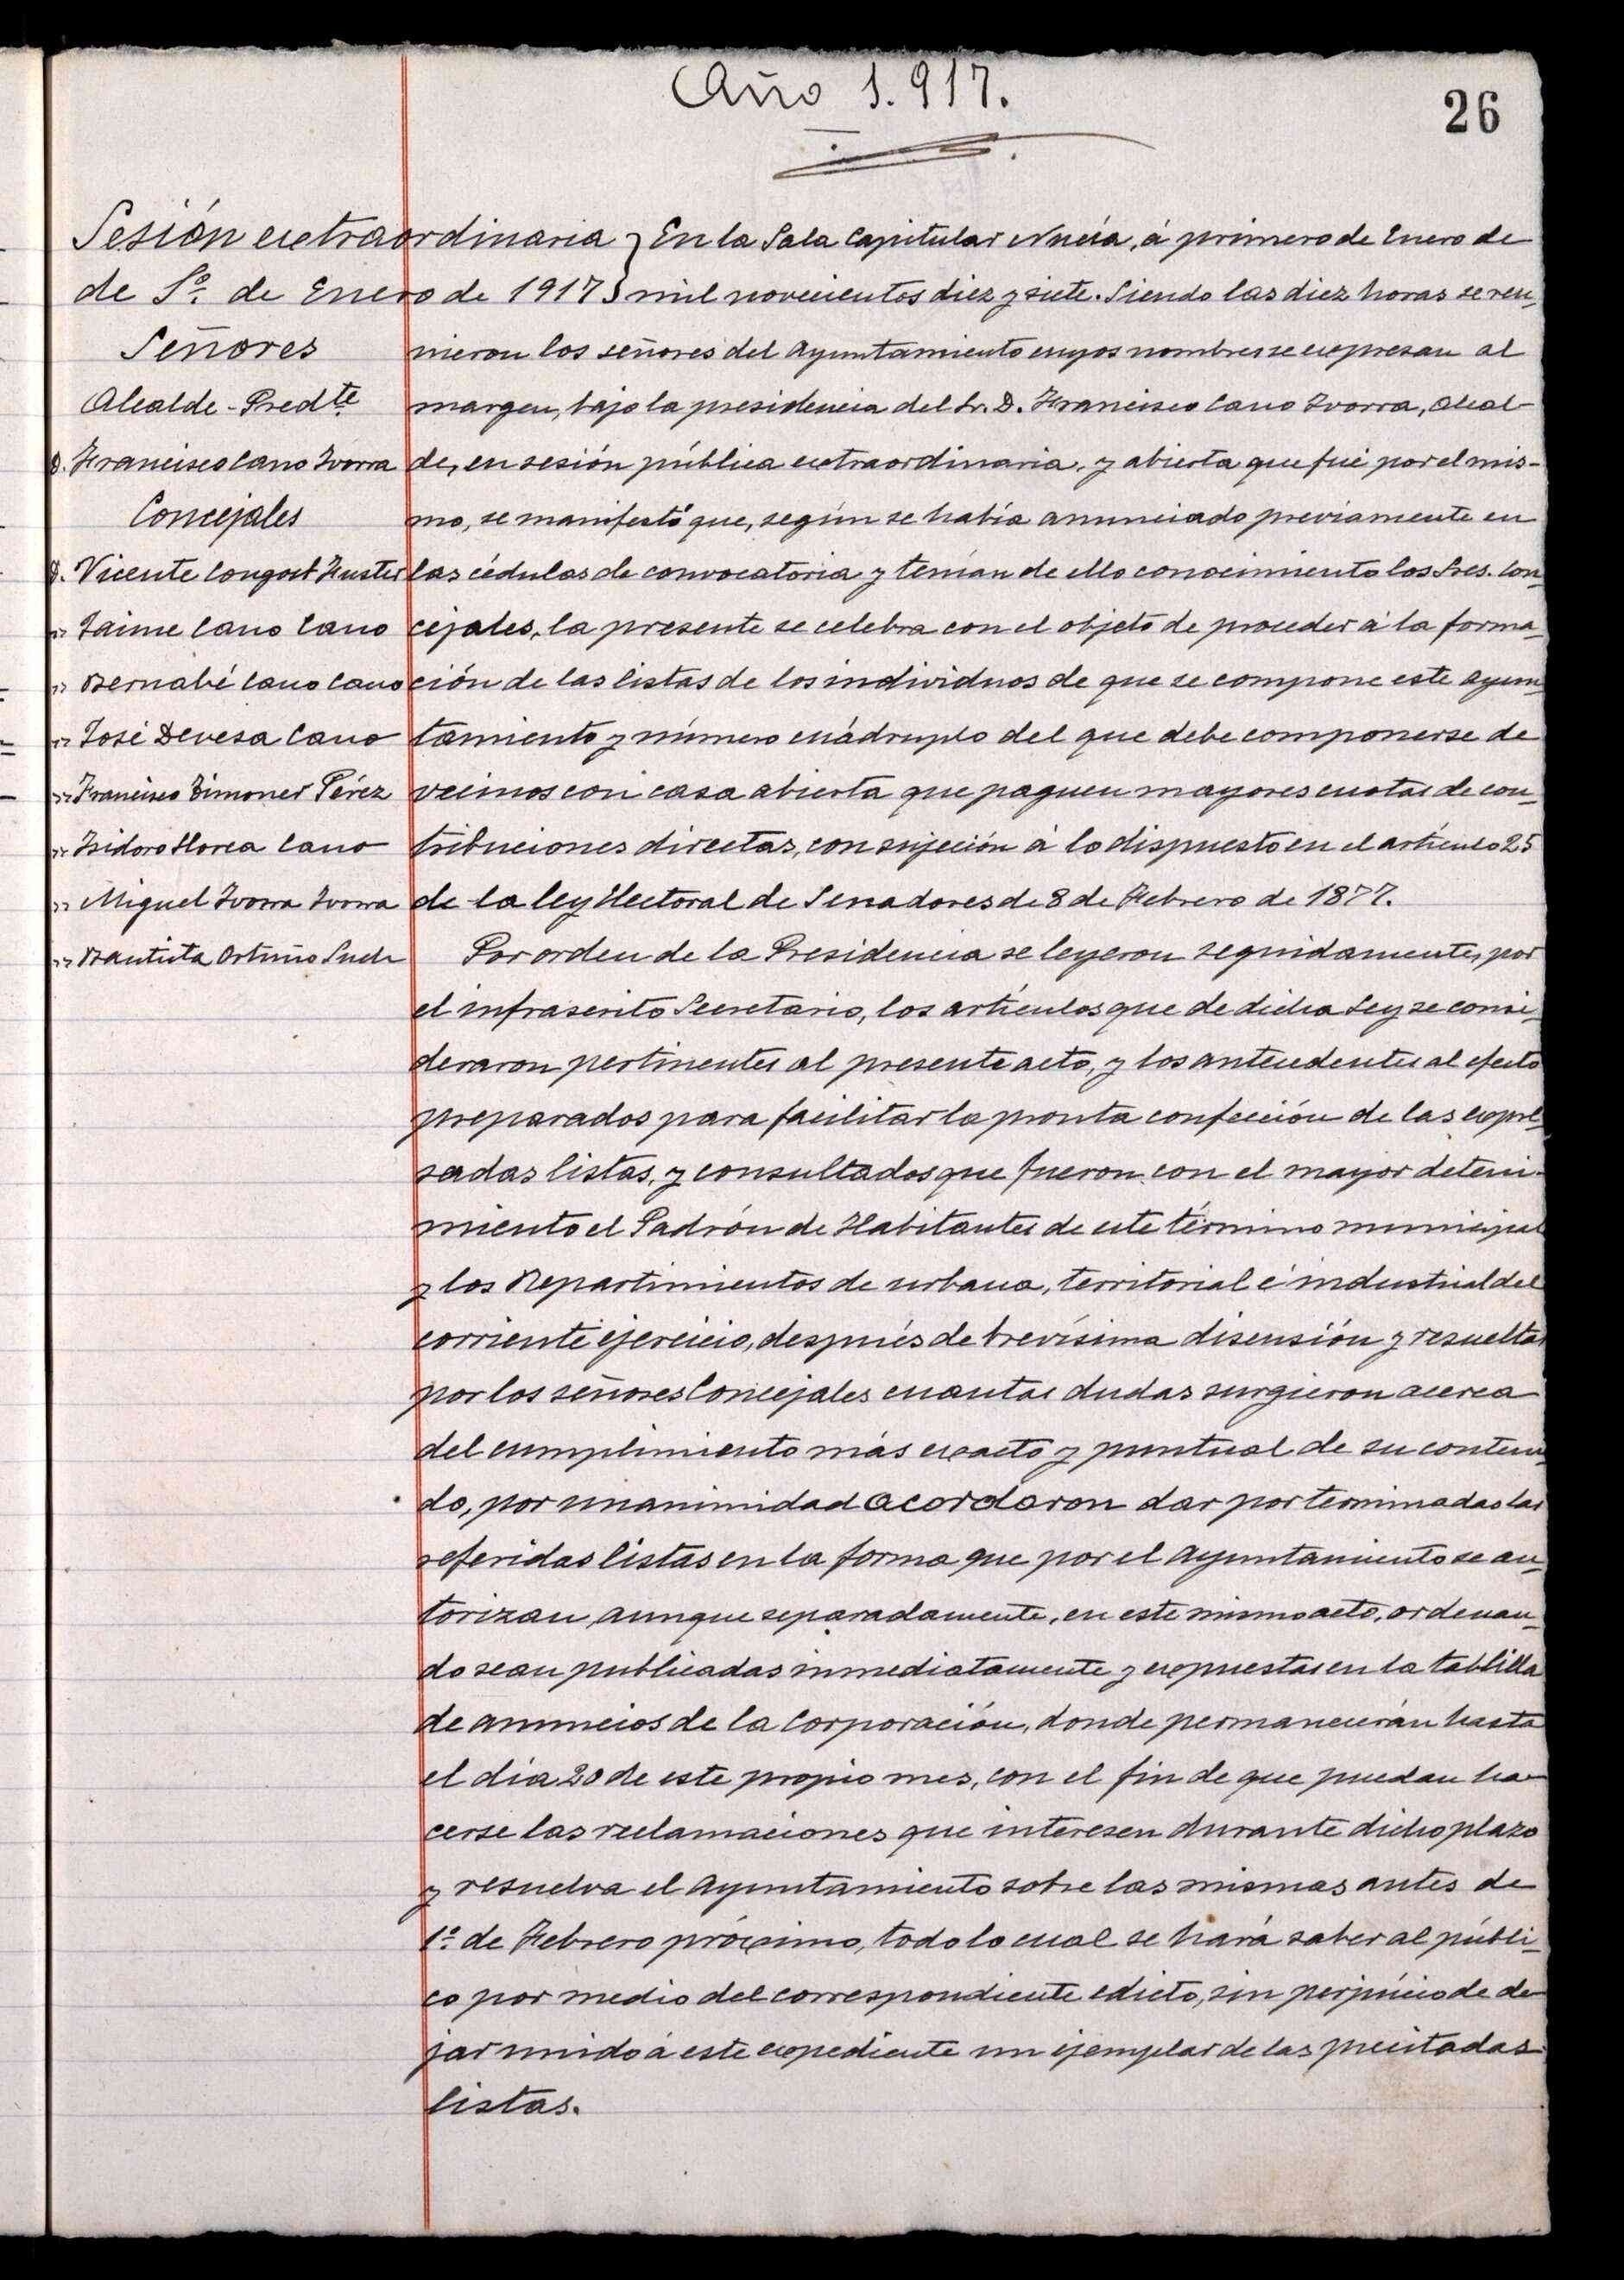 Año 1.917.
26
Sesión extraordinaria
de 1º de Enero de 1917
Señores
Alcalde-Predte
D. Francisco Cano Ivorra
Concejales
D. Vicente Congost Fuster
" Jaime Cano Cano
" Bernabé Cano Cano
" José Devesa Cano
" Francisco Gimoner Pérez
" Isidoro Llorca Cano
" Miguel Ivorra Ivorra
" Bautista Ortuño Such
En la Sala Capitular Nucía, á primero de Enero de
mil novecientos diez y siete. Siendo las diez horas se reu-
nieron los señores del Ayuntamiento cuyos nombres se expresan al
margen, bajo la presidencia del Sr. D. Francisco Cano Ivorra, Alcal-
de, en sesión pública extraordinaria, y abierta que fué por el mis-
mo, se manifestó que, según se había anunciado previamente en
las cédulas de convocatoria y tenían de ello conocimiento los Sres. Con-
cejales, la presente se celebra con el objeto de proceder á la forma-
ción de las listas de los individuos de que se compone este Ayun-
tamiento y número cuádruplo del que debe componerse de
vecinos con casa abierta que paguen mayores cuotas de con-
tribuciones directas, con sujeción á lo dispuesto en el artículo 25
de la ley Electoral de Senadores de 8 de Febrero de 1877.
Por orden de la Presidencia se leyeron seguidamente, por
el infrascrito Secretario, los artículos que de dicha Ley se consi-
deraron pertinentes al presente acto, y los antecedentes al efecto
preparados para facilitar la pronta confección de las expre-
sadas listas, y consultados que fueron con el mayor deteni-
miento el Padrón de Habitantes de este término municipal
y los Repartimientos de urbana, territorial é industrial del
corriente ejercicio, después de brevísima discusión y resueltas
por los señores Concejales cuantas dudas surgieron acerca
del cumplimiento más exacto y puntual de su conteni-
do, por unanimidad acordaron dar por terminadas las
referidas listas en la forma que por el Ayuntamiento se au-
torizan, aunque separadamente, en este mismo acto, ordenan-
do sean publicadas inmediatamente y expuestas en la tablilla
de anuncios de la Corporación, donde permanecerán hasta
el día 20 de este propio mes, con el fin de que puedan ha-
cerse las reclamaciones que interesen durante dicho plazo
y resuelva el Ayuntamiento sobre las mismas antes de
1º de Febrero próximo, todo lo cual se hará saber al públi-
co por medio del correspondiente edicto, sin perjuicio de de-
jar unido á este expediente un ejemplar de las precitadas
listas.